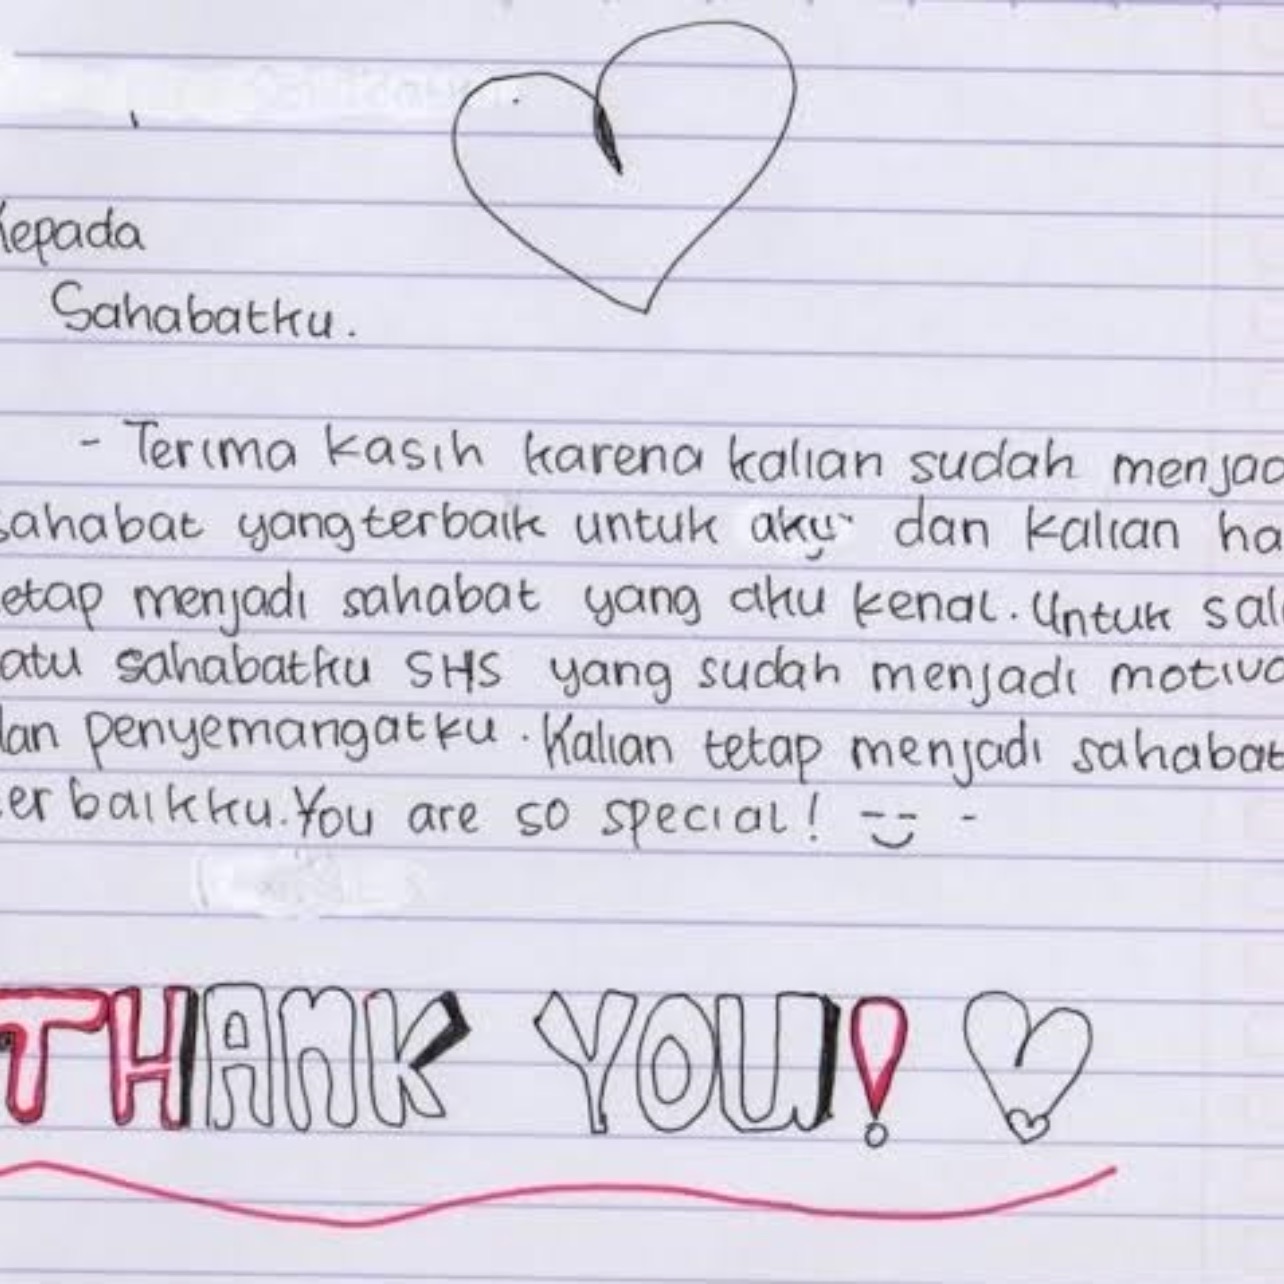 Kepada
Sahabatku.
- Terima kasih karena kalian sudah menjad
sahabat yang terbaik untuk aku dan kalian ha
etap menjadi sahabat yang aku kenal. Untuk sal
atu sahabatku SHS yang sudah menjadi motiva
dan penyemangatku. Kalian tetap menjadi sahabat
terbaikku. You are so special! -
THANK YOU!